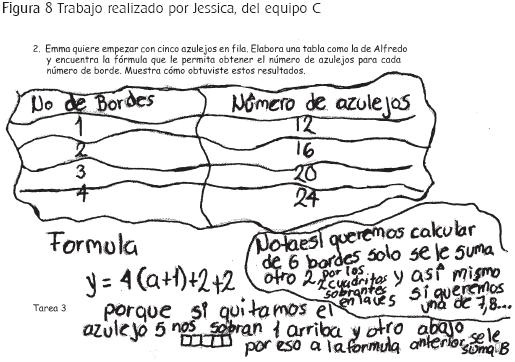 Figura 8 Trabajo realizado por Jessica, del equipo C
2. Emma quiere empezar con cinco azulejos en fila. Elabora una tabla como la de Alfredo
y encuentra la fórmula que le permita obtener el número de azulejos para cada
número de borde. Muestra cómo obtuviste estos resultados.
No de Bordes Número de azulejos
1 12
2 16
3 20
4 24
Formula
y = 4(a+1)+2+2
Nota esi queremos calcular
de 6 bordes solo se le suma
otro 2 por los 2 cuadritos sobrantes y así mismo
en la ves si queremos
una de 7,8...
Tarea 3
porque si quitamos el
azulejo 5 nos sobran 1 arriba y otro abajo
por eso a la formula anterior se le suma